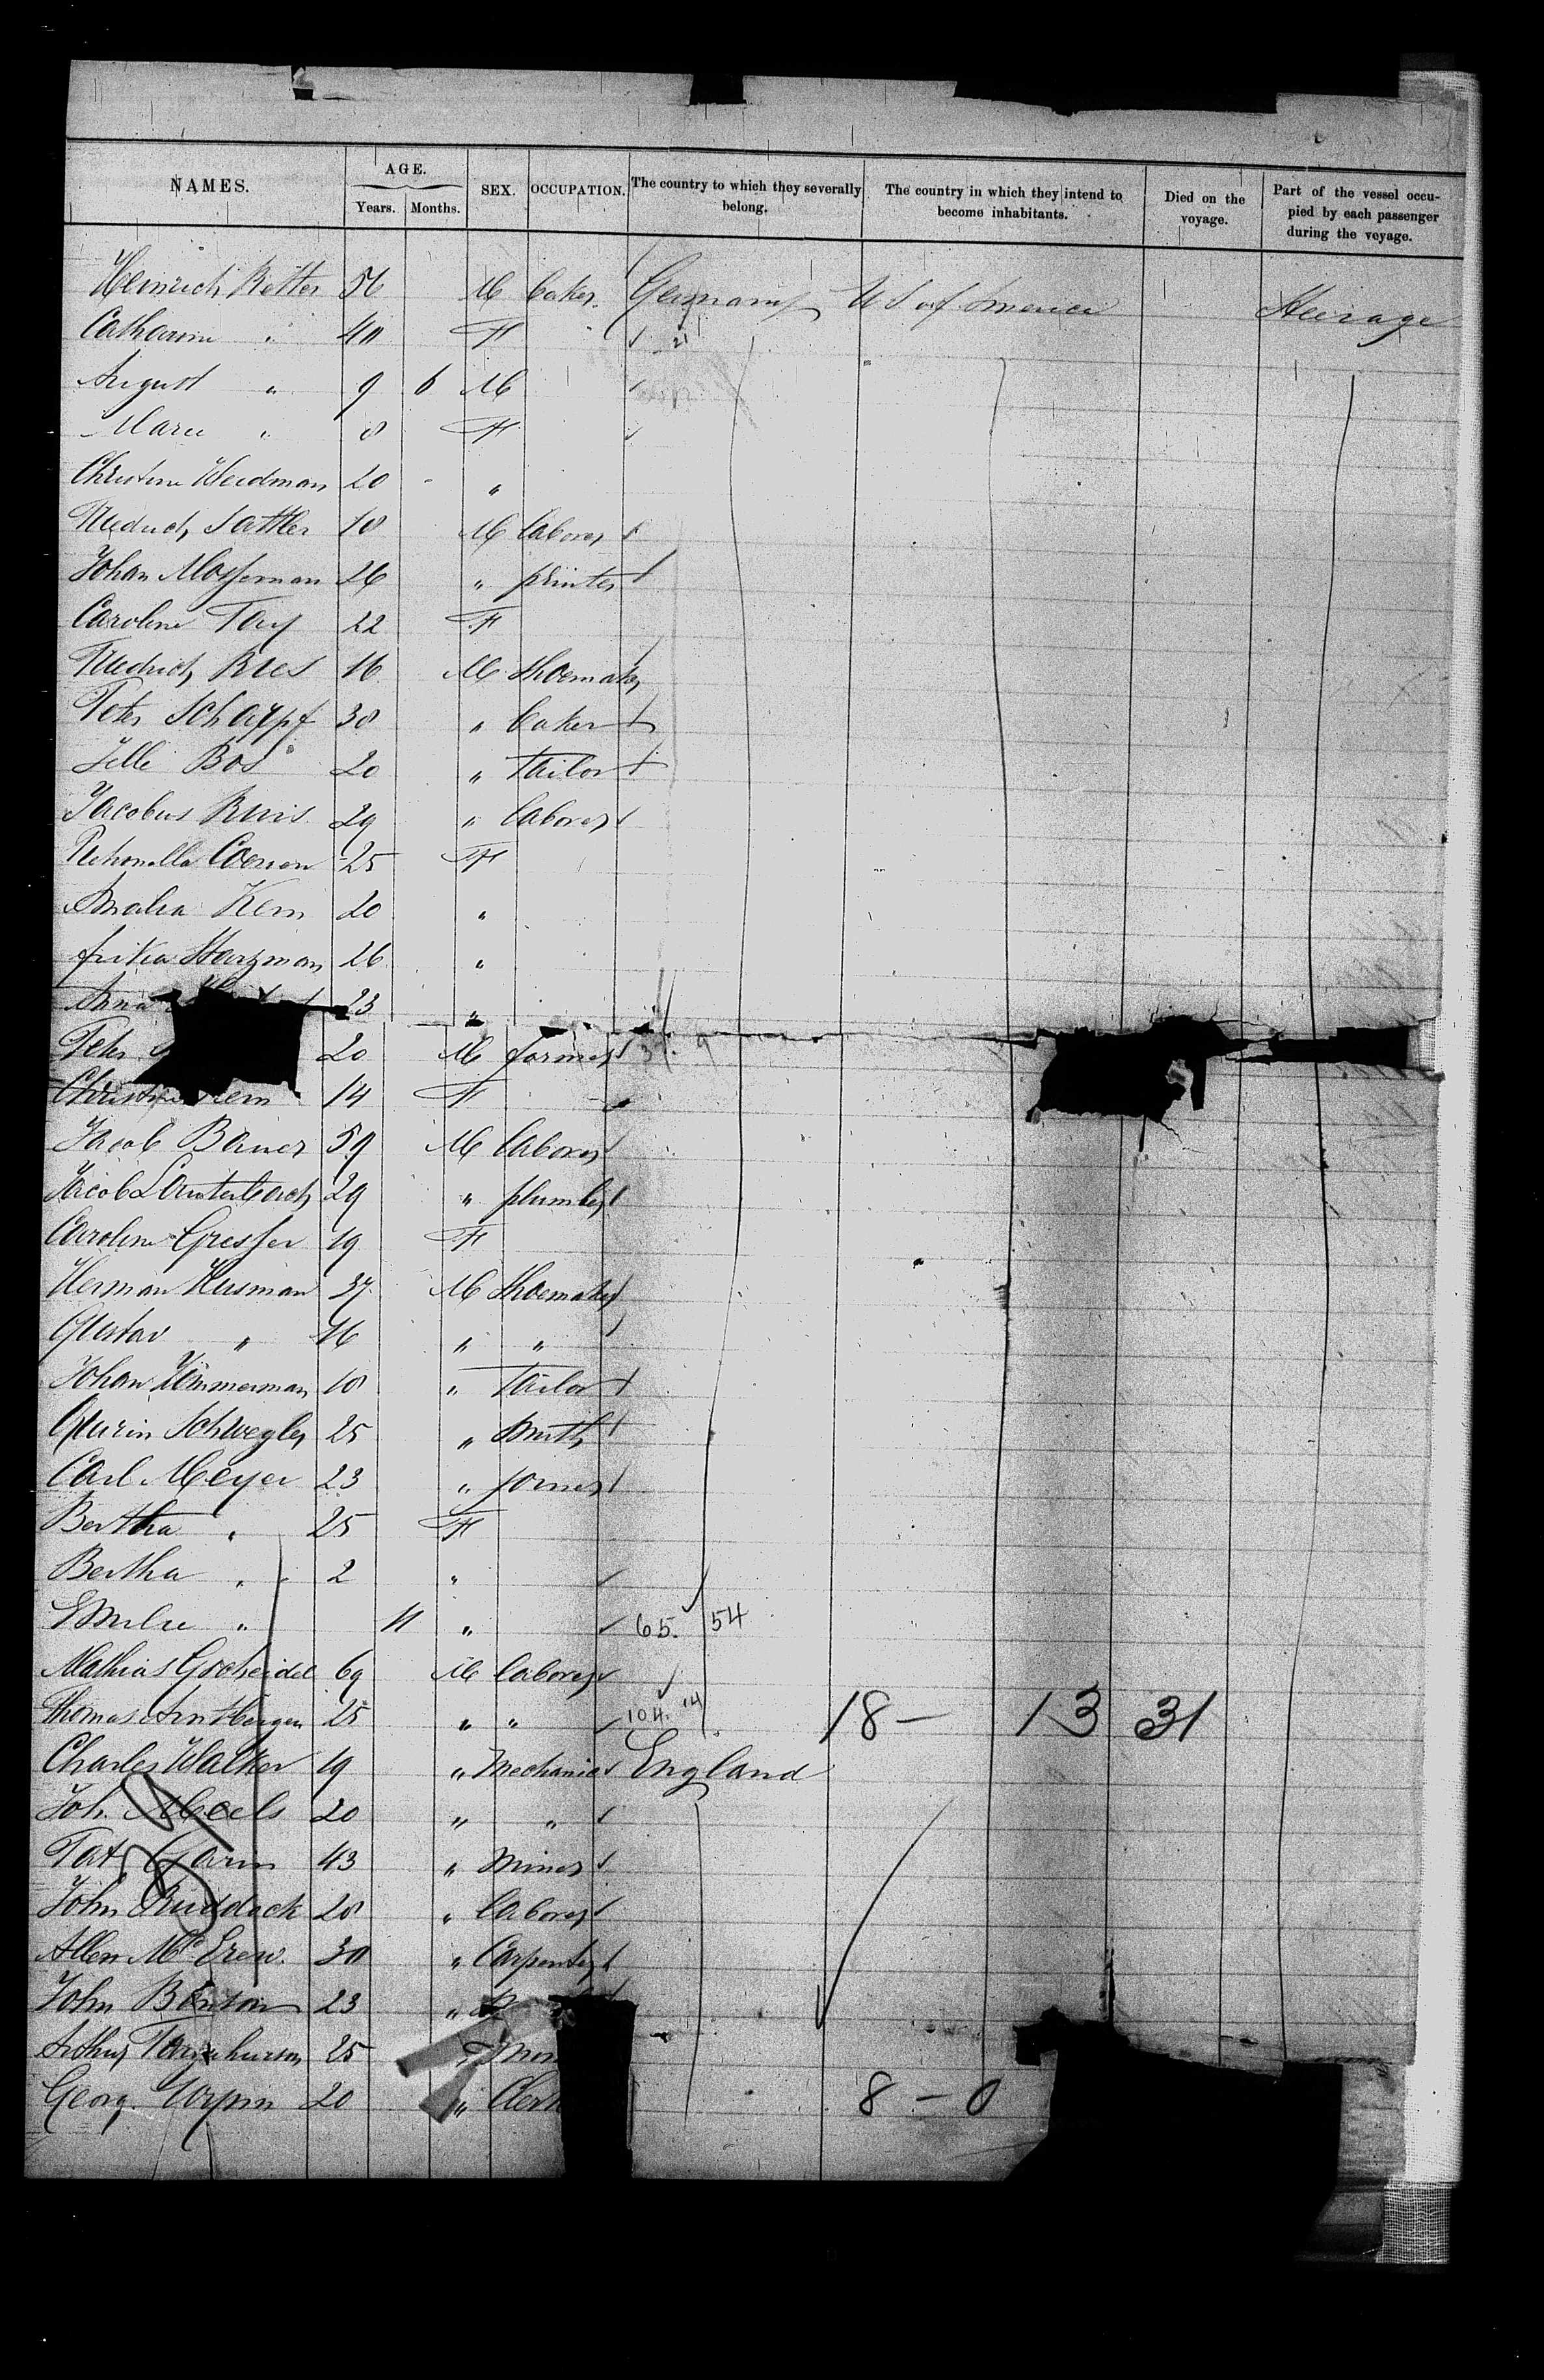 NAMES. AGE. Years. Months. SEX. OCCUPATION. The country to which they severally belong. The country in which they intend to become inhabitants. Died on the voyage. Part of the vessel occupied by each passenger during the voyage.
Heinrich 56 M baker Germany U S of America Steerage
Catharine " 40 F 21
August " 9 6 M
Marie " 8 F
Christine Weidman 20 "
Friedrich Sattler 18 M laborer
Johan Mosserman 26 " printer
Caroline Fay 22 F
Friedrich Ries 16 M shoemaker
Peter Schaypf 38 " baker
Jelle Bos 20 " tailor
Jacobus Ruis 29 " laborer
Petronella Coenen 25 F
Amalia Kern 20 "
Harzman 26 "
Anna 23 "
Peter 20 M farmer
Christine Kern 14 F
Jacob Bauer 59 M laborer
Jacob Lauterbach 29 " plumber
Caroline Gresser 19 F
Herman Husman 37 M shoemaker
Gustav " 16 " "
Johan Zimmerman 18 " tailor
Quirin Schwegler 25 " smith
Carl Meyer 23 " joiner
Bertha " 25 F
Bertha " 2 "
Emilie " 11 " 65. 54
Mathias Gscheidel 69 M laborer
Thomas 25 " " 104. 14 18 — 13 31
Charles Walker 19 " mechanic England
Joh. Meels 20 " "
Pat. Garin 43 " miner
John Ruddock 28 " laborer
Allen McCrew. 30 " Carpenter
John Benson 23 "
Arthur 25 "
Georg. 20 " Clerk 8 — 0